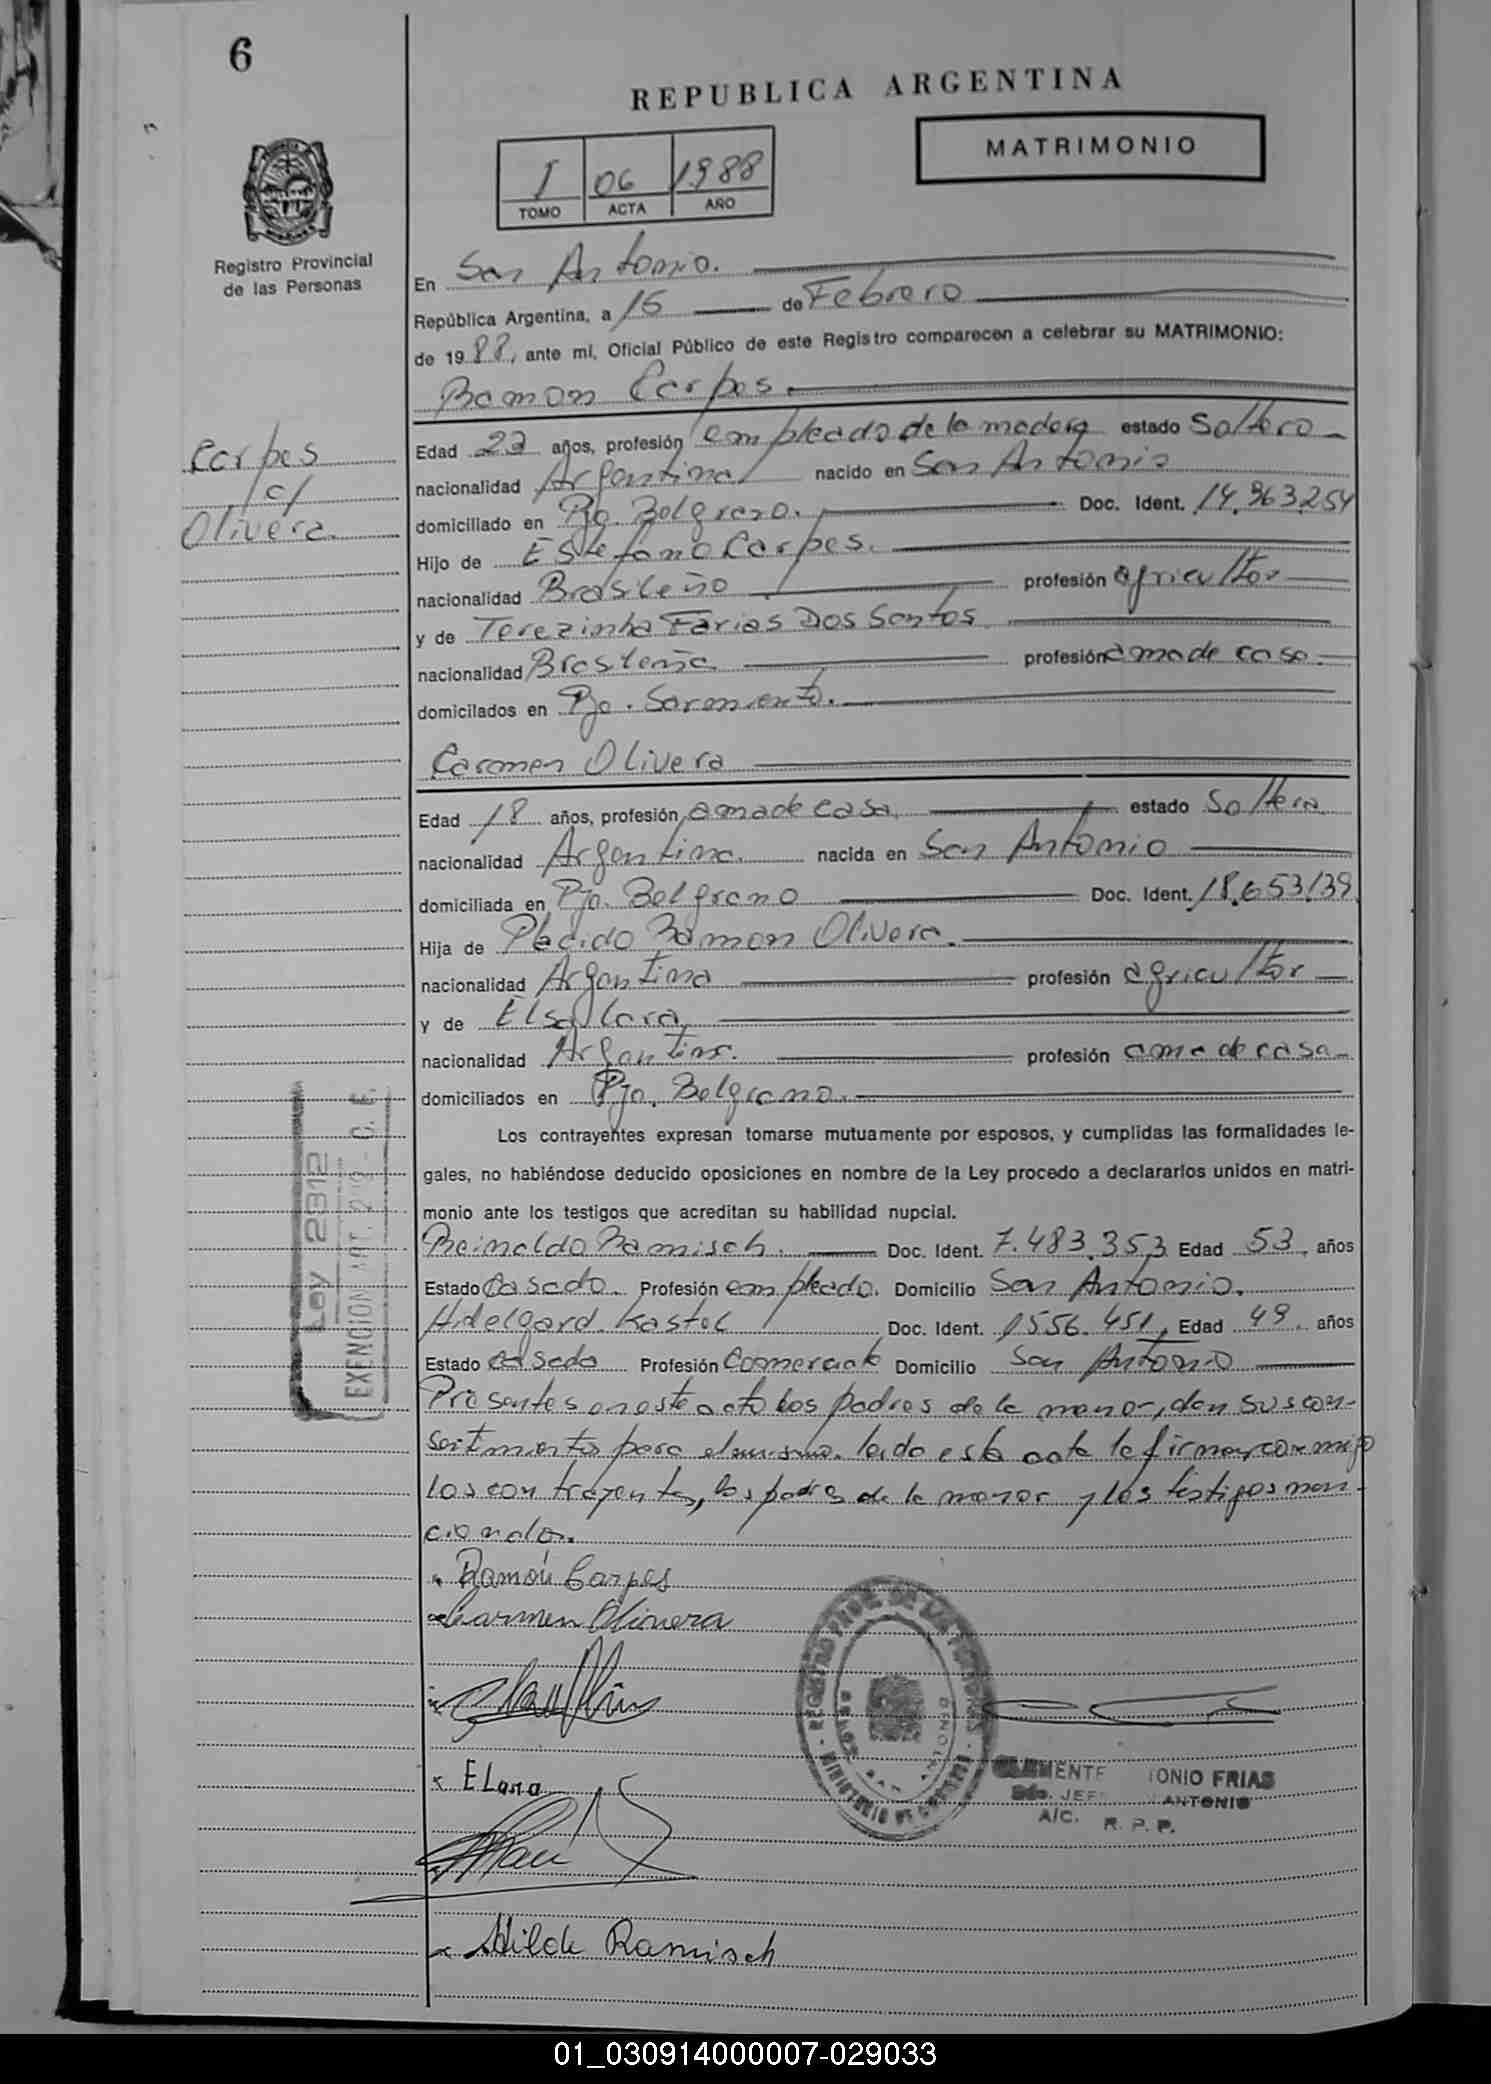 6
REPUBLICA ARGENTINA
MATRIMONIO
I 06 1988
TOMO ACTA AÑO
Registro Provincial
de las Personas
En San Antonio.
República Argentina, a 15 de Febrero
de 1988, ante mí, Oficial Público de este Registro comparecen a celebrar su MATRIMONIO:
Ramon Carpes.
Carpes
c/
Olivera.
Edad 23 años, profesión empleado de la madera estado Soltero
nacionalidad Argentina nacido en San Antonio
domiciliado en Pje. Belgrano. Doc. Ident. 14.963.254
Hijo de Estefano Carpes.
nacionalidad Brasileño profesión agricultor
y de Terezinha Farias Dos Santos
nacionalidad Brasileña profesión ama de casa.
domicilados en Pje. Sarmiento.
Carmen Olivera
Edad 18 años, profesión ama de casa. estado Soltera
nacionalidad Argentina. nacida en San Antonio
domiciliada en Pje. Belgrano Doc. Ident. 18.653.139
Hija de Placido Ramon Olivera.
nacionalidad Argentina profesión agricultor
y de Elsa Lara
nacionalidad Argentina. profesión ama de casa
domiciliados en Pje. Belgrano.
Los contrayentes expresan tomarse mutuamente por esposos, y cumplidas las formalidades le-
gales, no habiéndose deducido oposiciones en nombre de la Ley procedo a declararlos unidos en matri-
monio ante los testigos que acreditan su habilidad nupcial.
Reinaldo Ramisch. Doc. Ident. 7.483.353 Edad 53, años
Estado Casado. Profesión empleado. Domicilio San Antonio.
Hidelgard Kastel Doc. Ident. 1556.451, Edad 49, años
Estado casada Profesión Comerciante Domicilio San Antonio
Presentes en este acto los padres de la menor, dan su con-
sentimiento para el mismo. leida esta acta la firman conmigo
los contrayentes, los padres de la menor y los testigos men-
cionados.
Ramón Carpes
Carmen Olivera
E Lara
Hilde Ramisch
Ley 2312
EXENCION ART.
CLEMENTE ONIO FRIAS
JEF ANTONIO
A/C. R. P. P.
01_030914000007-029033